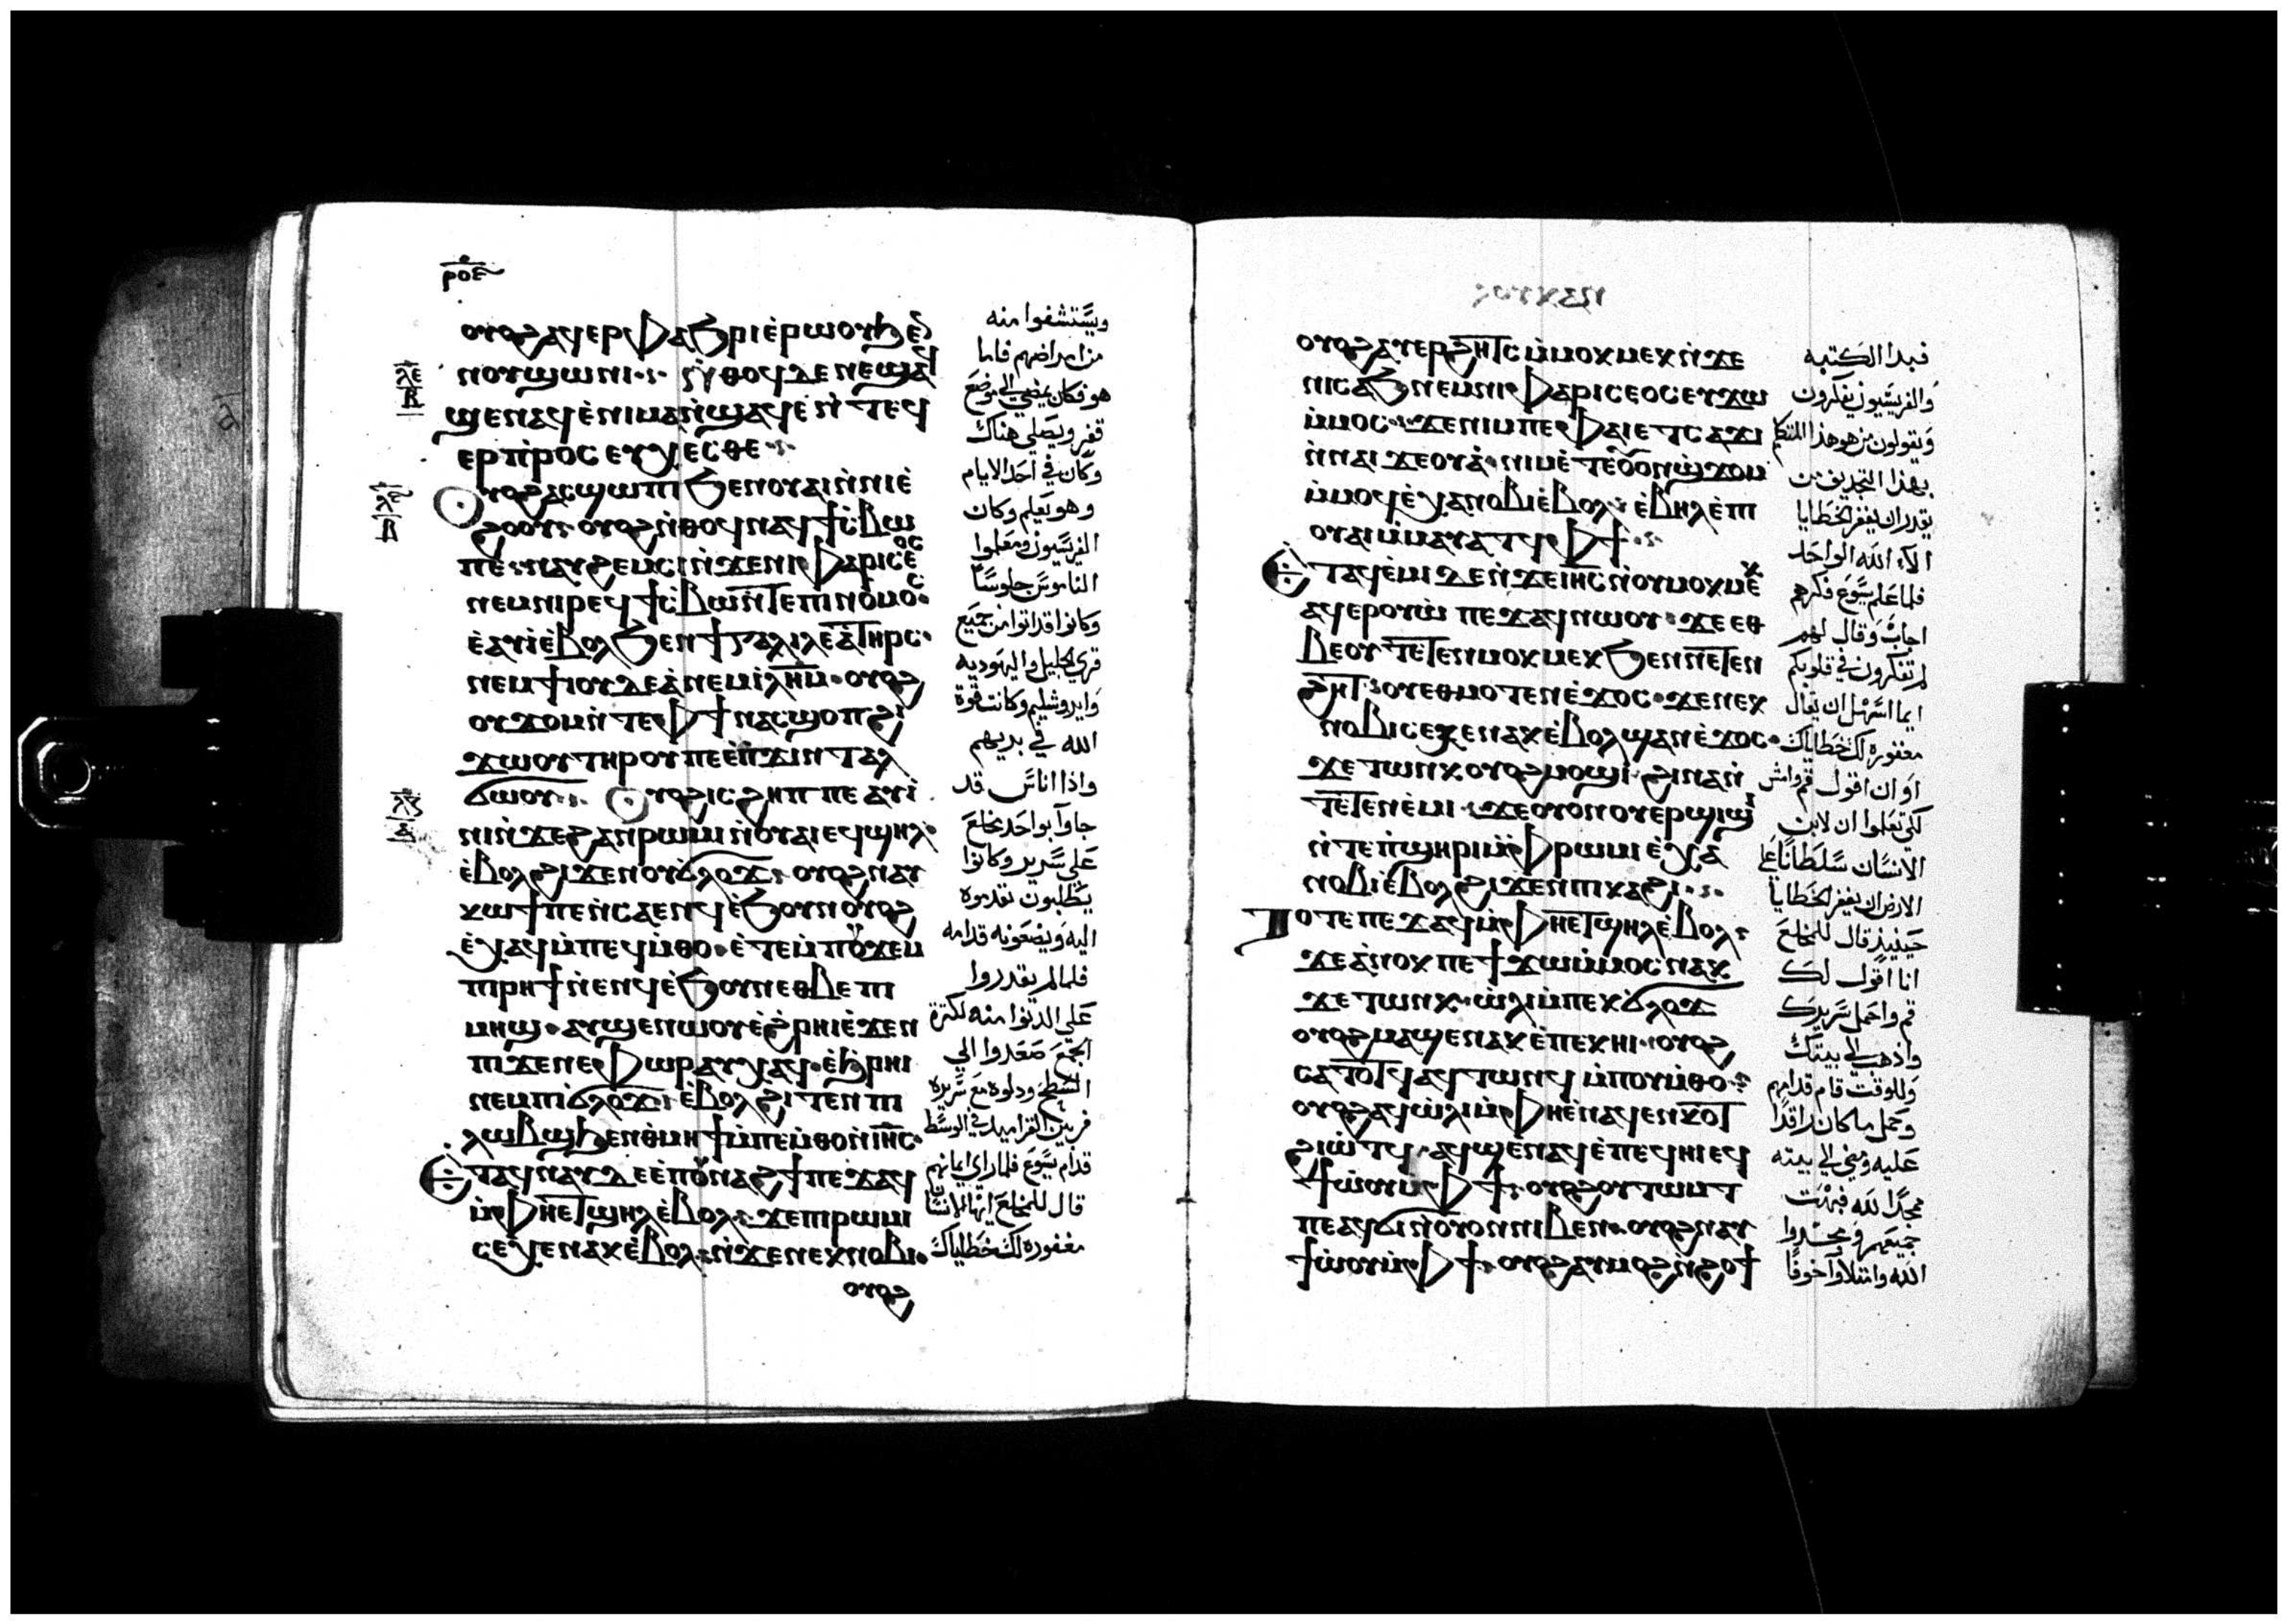 ⲣⲟⲉ
ⲟⲩⲟϩ ⲁϥⲉⲣⲫⲁϧⲣⲓ ⲉ̀ⲣⲱⲟⲩ ϧⲉⲛ
ⲛⲟⲩϣⲱⲛⲓ ⲛ̀ⲑⲟϥ ⲇⲉ ⲛⲉϣⲁϥ
ϣⲉⲛⲁϥ ⲉ̀ⲛⲓⲙⲁⲛ̀ϣⲁϥⲉ ⲛ̀ⲧⲉϥ
ⲉⲣⲡ̀ⲣⲟⲥⲉⲩⲭⲉⲥⲑⲉ
ⲟⲩⲟϩ ⲁⲥϣⲱⲡⲓ ϧⲉⲛ ⲟⲩⲁⲓ ⲛ̀ⲛⲓⲉ̀
ϩⲟⲟⲩ ⲟⲩⲟϩ ⲛ̀ⲑⲟϥ ⲛⲁϥϯⲥ̀ⲃⲱ
ⲡⲉ ⲛⲁⲩϩⲉⲙⲥⲓ ⲛ̀ϫⲉ ⲛⲓⲫⲁⲣⲓⲥⲉⲟⲥ
ⲛⲉⲙ ⲛⲓⲣⲉϥϯⲥ̀ⲃⲱ ⲛ̀ⲧⲉ ⲡⲓⲛⲟⲙⲟⲥ
ⲉ̀ⲁⲩⲓ̀ ⲉ̀ⲃⲟⲗ ϧⲉⲛ ϯⲅⲁⲗⲓⲗⲉⲁ̀ ⲧⲏⲣⲥ
ⲛⲉⲙ ϯⲓⲟⲩⲇⲉⲁ̀ ⲛⲉⲙ ⲓ̀ⲗⲏⲙ ⲟⲩⲟϩ
ⲟⲩϫⲟⲙ ⲛ̀ⲧⲉ ⲫϯ ⲛⲁⲥϣⲟⲡ ϩⲓ
ϫⲱⲟⲩ ⲧⲏⲣⲟⲩ ⲡⲉ ⲉ̀ⲡϫⲓⲛⲧⲁⲗ
ϭⲱⲟⲩ ⲟⲩⲟϩ ⲓⲥ ϩⲏⲡⲡⲉ ⲁⲩⲓ̀
ⲛⲓ ⲛ̀ϫⲉ ϩⲁⲛⲣⲱⲙⲓ ⲛ̀ⲟⲩⲁⲓ ⲉϥϣⲏⲗ
ⲉ̀ⲃⲟⲗ ϩⲓϫⲉⲛ ⲟⲩϭⲗⲟϫ ⲟⲩⲟϩ ⲛⲁⲩ
ⲕⲱϯ ⲡⲉ ⲛ̀ⲥⲁ ⲉⲛϥ ⲉ̀ϧⲟⲩⲛ ⲟⲩⲟϩ
ⲉ̀ⲭⲁϥ ⲙ̀ⲡⲉϥⲙ̀ⲑⲟ ⲉ̀ⲧⲉⲙ̀ⲡⲟⲩϫⲉⲙ
ⲡⲓⲣⲏϯ ⲛ̀ⲉⲛϥ ⲉ̀ϧⲟⲩⲛ ⲉⲑⲃⲉ ⲡⲓ
ⲙⲏϣ ⲁⲩϣⲉⲛⲱⲟⲩ ⲉ̀ϩⲣⲏⲓ ⲉ̀ϫⲉⲛ
ⲡⲓϫⲉⲛⲉⲫⲱⲣ ⲁⲩⲭⲁϥ ⲉ̀ϧⲣⲏⲓ
ⲛⲉⲙ ⲡⲓϭⲗⲟϫ ⲉ̀ⲃⲟⲗ ϩⲓⲧⲉⲛ ⲡⲓ
ⲗⲱⲃϣ ϧⲉⲛ ⲑⲙⲏϯ ⲙ̀ⲡⲉⲙ̀ⲑⲟ ⲛ̀ⲓⲏⲥ
ⲉ̀ⲧⲁϥⲛⲁⲩ ⲇⲉ ⲉ̀ⲡⲟⲩⲛⲁϩϯ ⲡⲉϫⲁϥ
ⲙ̀ⲫⲏⲉⲧϣⲏⲗ ⲉ̀ⲃⲟⲗ ϫⲉ ⲡⲓⲣⲱⲙⲓ
ⲥⲉⲭⲏ ⲛⲁⲕ ⲉ̀ⲃⲟⲗ ⲛ̀ϫⲉ ⲛⲉⲕⲛⲟⲃⲓ
ⲟⲩⲟϩ
ويستشفوا منه
من امراضهم فاما
هو فكان يمضي الي موضع
قفر ويصلي هناك
وكان في احد الايام
وهو يعلم وكان
الفريسيون ومعلموا
الناموس جلوسًا
وكانوا قد اتوا من جميع
قري الجليل واليهوديه
وايروشليم وكانت قوة
الله في بريهم
واذا اناس قد
جاوآ بواحد مخلع
علي سرير وكانوا
يطلبون تقدموه
اليه ويضعونه قدامه
فلما لم يقدروا
علي الدنوا منه لكثرة
الجمع صعدوا الي
السطح ودلوه مع سريره
فربين القراميد في الوسط
قدام يسوع فلما راي ايمانهم
قال للمخلع ايها الانسان
مغفوره لك خطاياك
ⲟⲩⲟϩ ⲁⲩⲉⲣϩⲏⲧⲥ ⲙ̀ⲙⲟⲕⲙⲉⲕ ⲛ̀ϫⲉ
ⲛⲓⲥⲁϧ ⲛⲉⲙ ⲛⲓⲫⲁⲣⲓⲥⲉⲟⲥ ⲉⲩϫⲱ
ⲙ̀ⲙⲟⲥ ϫⲉ ⲛⲓⲙ ⲡⲉ ⲫⲁⲓ ⲉⲧⲥⲁϫⲓ
ⲛ̀ⲛⲁⲓϫⲉⲟⲩⲁ̀ ⲛⲓⲙ ⲉ̀ⲧⲉ ⲟⲩⲟⲛ ϣϫⲟⲙ
ⲙ̀ⲙⲟϥ ⲉ̀ⲭⲁ ⲛⲟⲃⲓ ⲉ̀ⲃⲟⲗ ⲉ̀ⲃⲏⲗ ⲉ̀ⲡⲓ
ⲟⲩⲁⲓ ⲙ̀ⲙⲁⲩⲁⲧϥ ⲫϯ
ⲉ̀ⲧⲁϥⲉ̀ⲙⲓ ⲇⲉ ⲛ̀ϫⲉ ⲓⲏⲥ ⲛ̀ⲟⲩⲙⲟⲕⲙⲉⲕ
ⲁϥⲉⲣⲟⲩⲱ̀ ⲡⲉϫⲁϥ ⲛⲱⲟⲩ ϫⲉ ⲉⲑ
ⲃⲉⲟⲩ ⲧⲉⲧⲉⲛⲙⲟⲕⲙⲉⲕ ϧⲉⲛ ⲛⲉⲧⲉⲛ
ϩⲏⲧ ⲟⲩ ⲉⲑⲙⲟⲧⲉⲛ ⲉ̀ϫⲟⲥ ϫⲉ ⲛⲉⲕ
ⲛⲟⲃⲓ ⲥⲉⲭⲏ ⲛⲁⲕ ⲉ̀ⲃⲟⲗ ϣⲁⲛ ⲉ̀ϫⲟⲥ
ϫⲉ ⲧⲱⲛⲕ ⲟⲩⲟϩ ⲙⲟϣⲓ ϩⲓⲛⲁ ⲛ̀
ⲧⲉⲧⲉⲛⲉ̀ⲙⲓ ϫⲉ ⲟⲩⲟⲛ ⲟⲩⲉⲣϣⲓϣⲓ
ⲛ̀ⲧⲉ ⲡ̀ϣⲏⲣⲓ ⲙ̀ⲫⲣⲱⲙⲓ ⲉ̀ⲭⲁ
ⲛⲟⲃⲓ ⲉ̀ⲃⲟⲗ ϩⲓϫⲉⲛ ⲡⲓⲕⲁϩⲓ
ⲧⲟⲧⲉ ⲡⲉϫⲁϥ ⲙ̀ⲫⲏⲉⲧϣⲏⲗ ⲉ̀ⲃⲟⲗ
ϫⲉ ⲁ̀ⲛⲟⲕ ⲡⲉϯϫⲱ ⲙ̀ⲙⲟⲥ ⲛⲁⲕ
ϫⲉ ⲧⲱⲛⲕ ⲱ̀ⲗⲓ ⲙ̀ⲡⲉⲕϭⲗⲟϫ
ⲟⲩⲟϩ ⲙⲁϣⲉⲛⲁⲕ ⲉ̀ⲡⲉⲕⲏⲓ ⲟⲩⲟϩ
ⲥⲁⲧⲟⲧϥ ⲁϥⲧⲱⲛϥ ⲙ̀ⲡⲟⲩⲙ̀ⲑⲟ
ⲟⲩⲟϩ ⲁϥⲱ̀ⲗⲓ ⲙ̀ⲫⲏⲉ̀ⲛⲁϥⲉⲛⲕⲟⲧ
ϩⲓⲱ̀ⲧϥ ⲁϥϣⲉⲛⲁϥ ⲉ̀ⲡⲉϥⲏⲓ ⲉϥ
ϯⲱ̀ⲟⲩ ⲙ̀ⲫϯ ⲟⲩⲟϩ ⲟⲩⲧⲱⲙⲧ
ⲡⲉ ⲁϥϭⲓ ⲛ̀ⲟⲩⲟⲛ ⲛⲓⲃⲉⲛ ⲟⲩⲟϩ ⲛⲁⲩ
ϯⲱ̀ⲟⲩ ⲙ̀ⲫϯ ⲟⲩⲟϩ ⲁⲩⲙⲟϩ ⲛ̀ϩⲟϯ
فبدا الكتبه
والفريسيون يفكرون
ويقولون من هو هذا المتكلم
بهذا التجديف من
يقدر ان يغفر الخطايا
الآ الله الواحد
فلما علم يسوع فكرهم
اجاب وقال لهم
لم تفكرون في قلوبكم
ايما اسهل ان يقال
مغفوره لك خطاياك
او ان اقول قم وامش
لكي تعلموا ان لابن
الانسان سلطانًا علي
الارض ان يغفر الخطايا
حينيذٍ قال للمخلع
انا اقول لك
قم واحمل سريرك
واذهب الي بيتك
وللوقت قام قدامهم
وحمل ما كان راقدًا
عليه ومضي الي بيته
ممجدًا لله فبهت
جميعهم ومجدوا
الله وامتلاوآ خوفًا